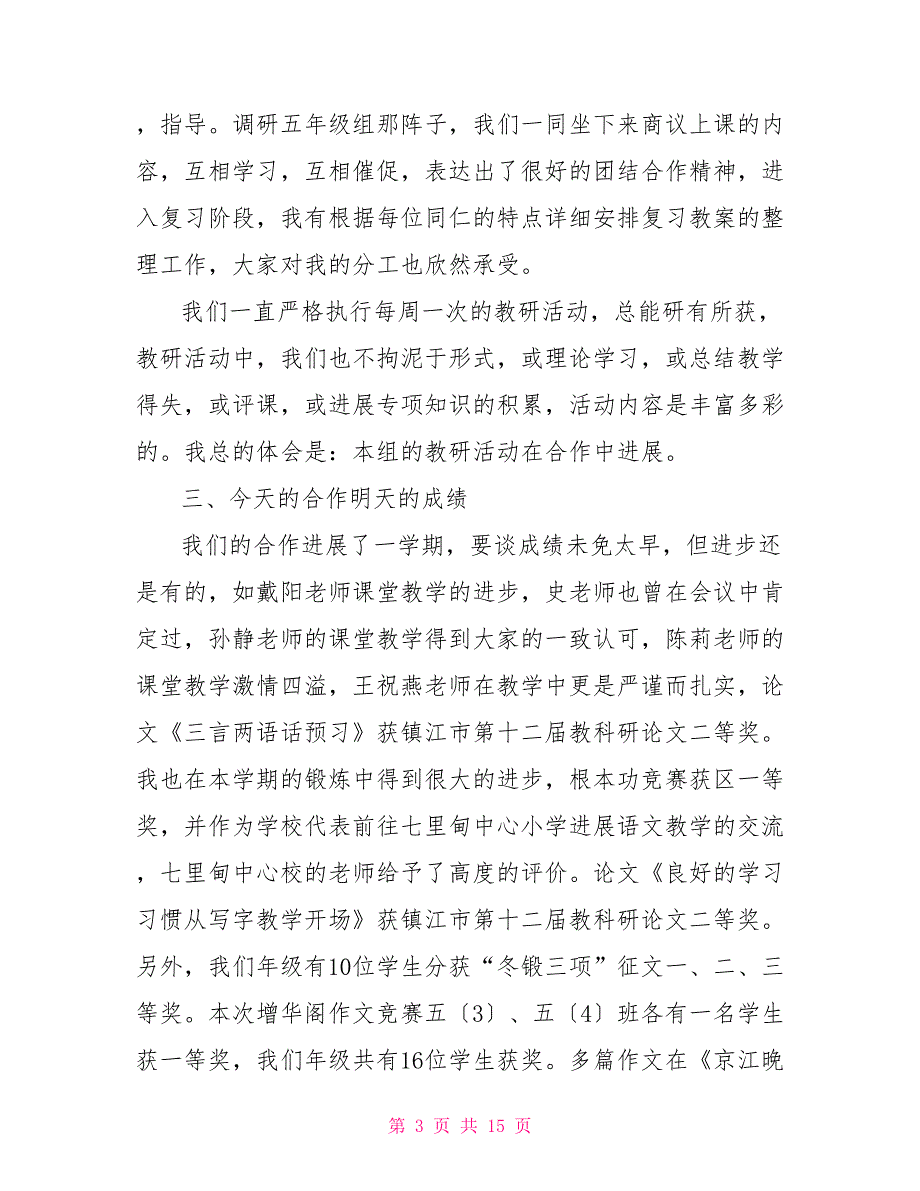 ，指导。调研五年级组那阵子，我们一同坐下来商议上课的内
容，互相学习，互相催促，表达出了很好的团结合作精神，进
入复习阶段，我有根据每位同仁的特点详细安排复习教案的整
理工作，大家对我的分工也欣然承受。
我们一直严格执行每周一次的教研活动，总能研有所获，
教研活动中，我们也不拘泥于形式，或理论学习，或总结教学
得失，或评课，或进展专项知识的积累，活动内容是丰富多彩
的。我总的体会是：本组的教研活动在合作中进展。
三、今天的合作明天的成绩
我们的合作进展了一学期，要谈成绩未免太早，但进步还
是有的，如戴阳老师课堂教学的进步，史老师也曾在会议中肯
定过，孙静老师的课堂教学得到大家的一致认可，陈莉老师的
课堂教学激情四溢，王祝燕老师在教学中更是严谨而扎实，论
文《三言两语话预习》获镇江市第十二届教科研论文二等奖。
我也在本学期的锻炼中得到很大的进步，根本功竞赛获区一等
奖，并作为学校代表前往七里甸中心小学进展语文教学的交流
，七里甸中心校的老师给予了高度的评价。论文《良好的学习
习惯从写字教学开场》获镇江市第十二届教科研论文二等奖。
另外，我们年级有10位学生分获“冬锻三项”征文一、二、三
等奖。本次增华阁作文竞赛五〔3〕、五〔4〕班各有一名学生
获一等奖，我们年级共有16位学生获奖。多篇作文在《京江晚
第 3 页 共 15 页